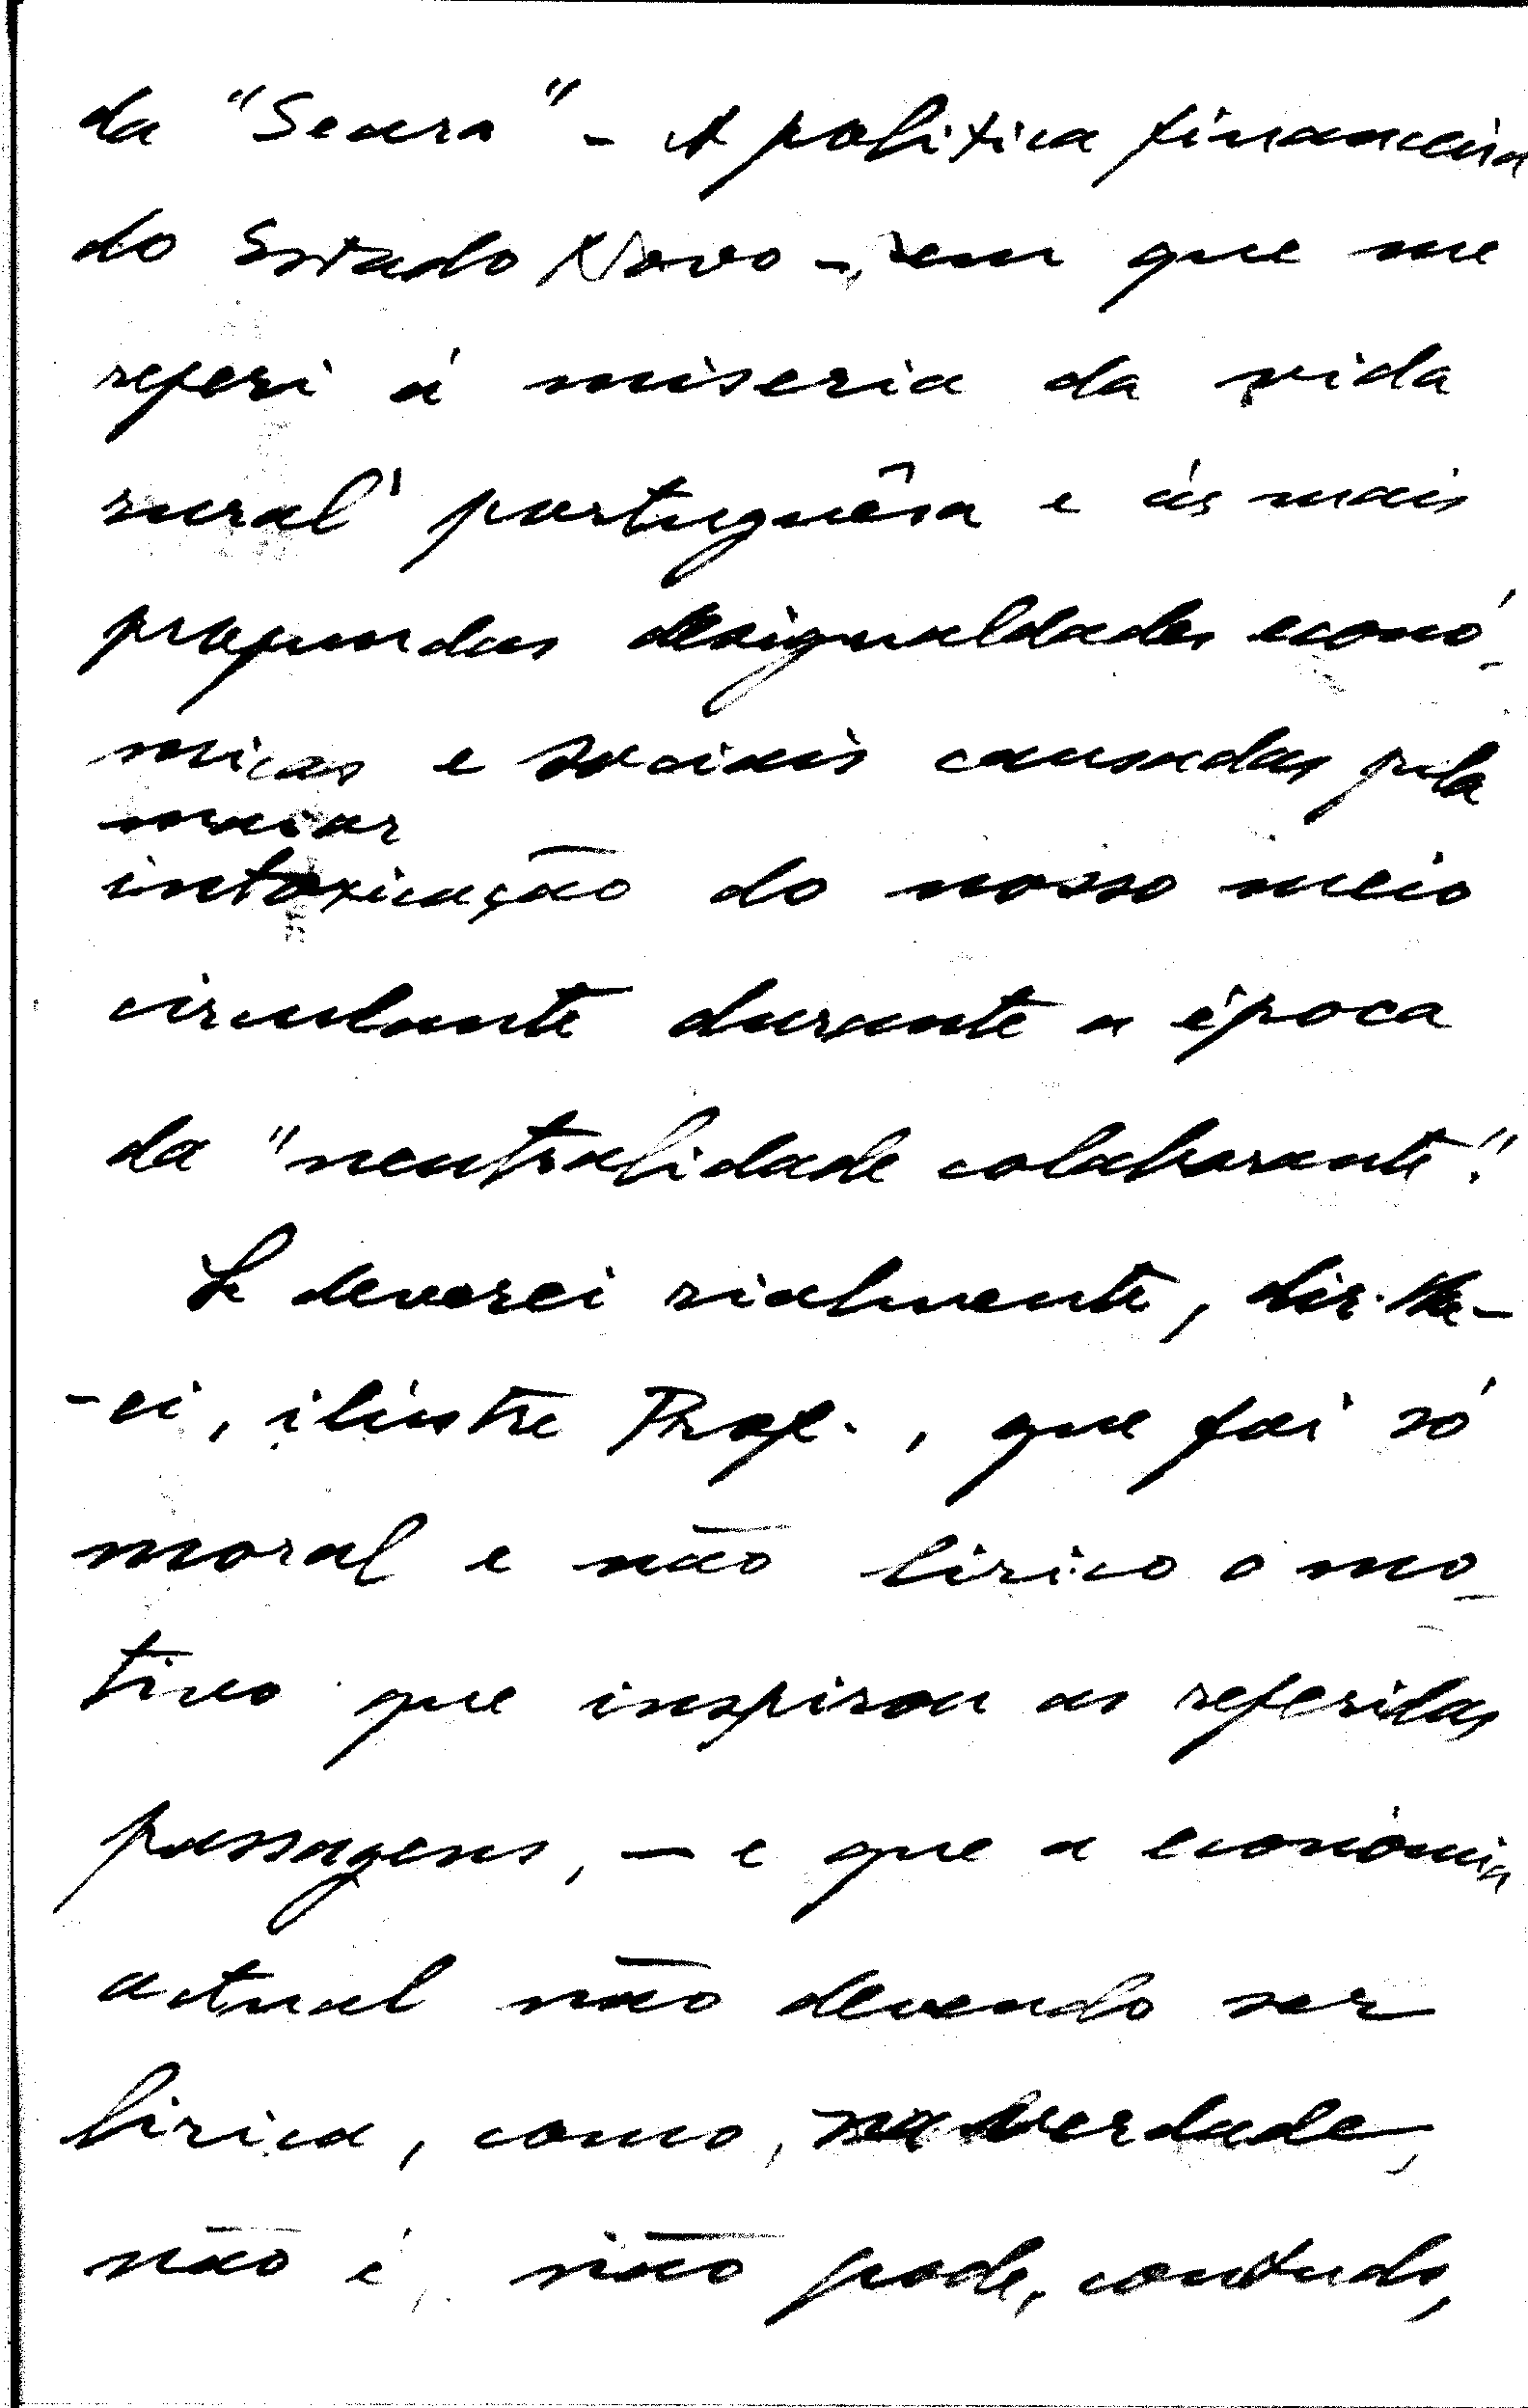 da "Seara" - A politica financeira
do Estado Novo -, em que me
referi á miseria da vida
rural portuguêsa e ás mais
profundas desigualdades econó-
micas e sociais causadas pela
maior
intoxicação do nosso meio
circulante durante a época
da "neutralidade colaborante".
E deverei rialmente, dir-lhe-
-ei, ilustre Prof., que foi só
moral e não lirico o mo-
tivo que inspirou as referidas
passagens, - e que a económia
actual não devendo ser
lirica, como, na verdade,
não é, não pode, contudo,